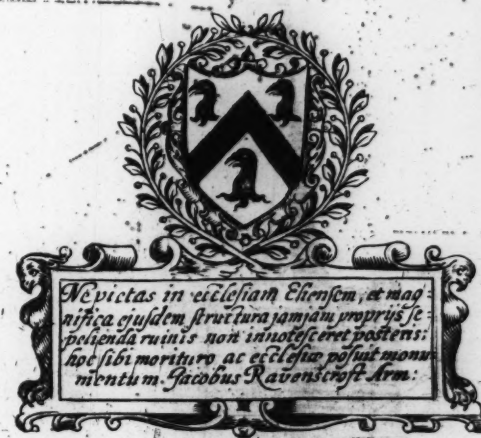 Ne pietas in ecclesiam Eliensem, et mag-
nifica ejusdem structura jamjam proprys se-
pelienda ruinis non innotesceret posteris:
hoc sibi morituro ac ecclesiæ posuit monu-
mentum. Jacobus Ravenscroft Arm: